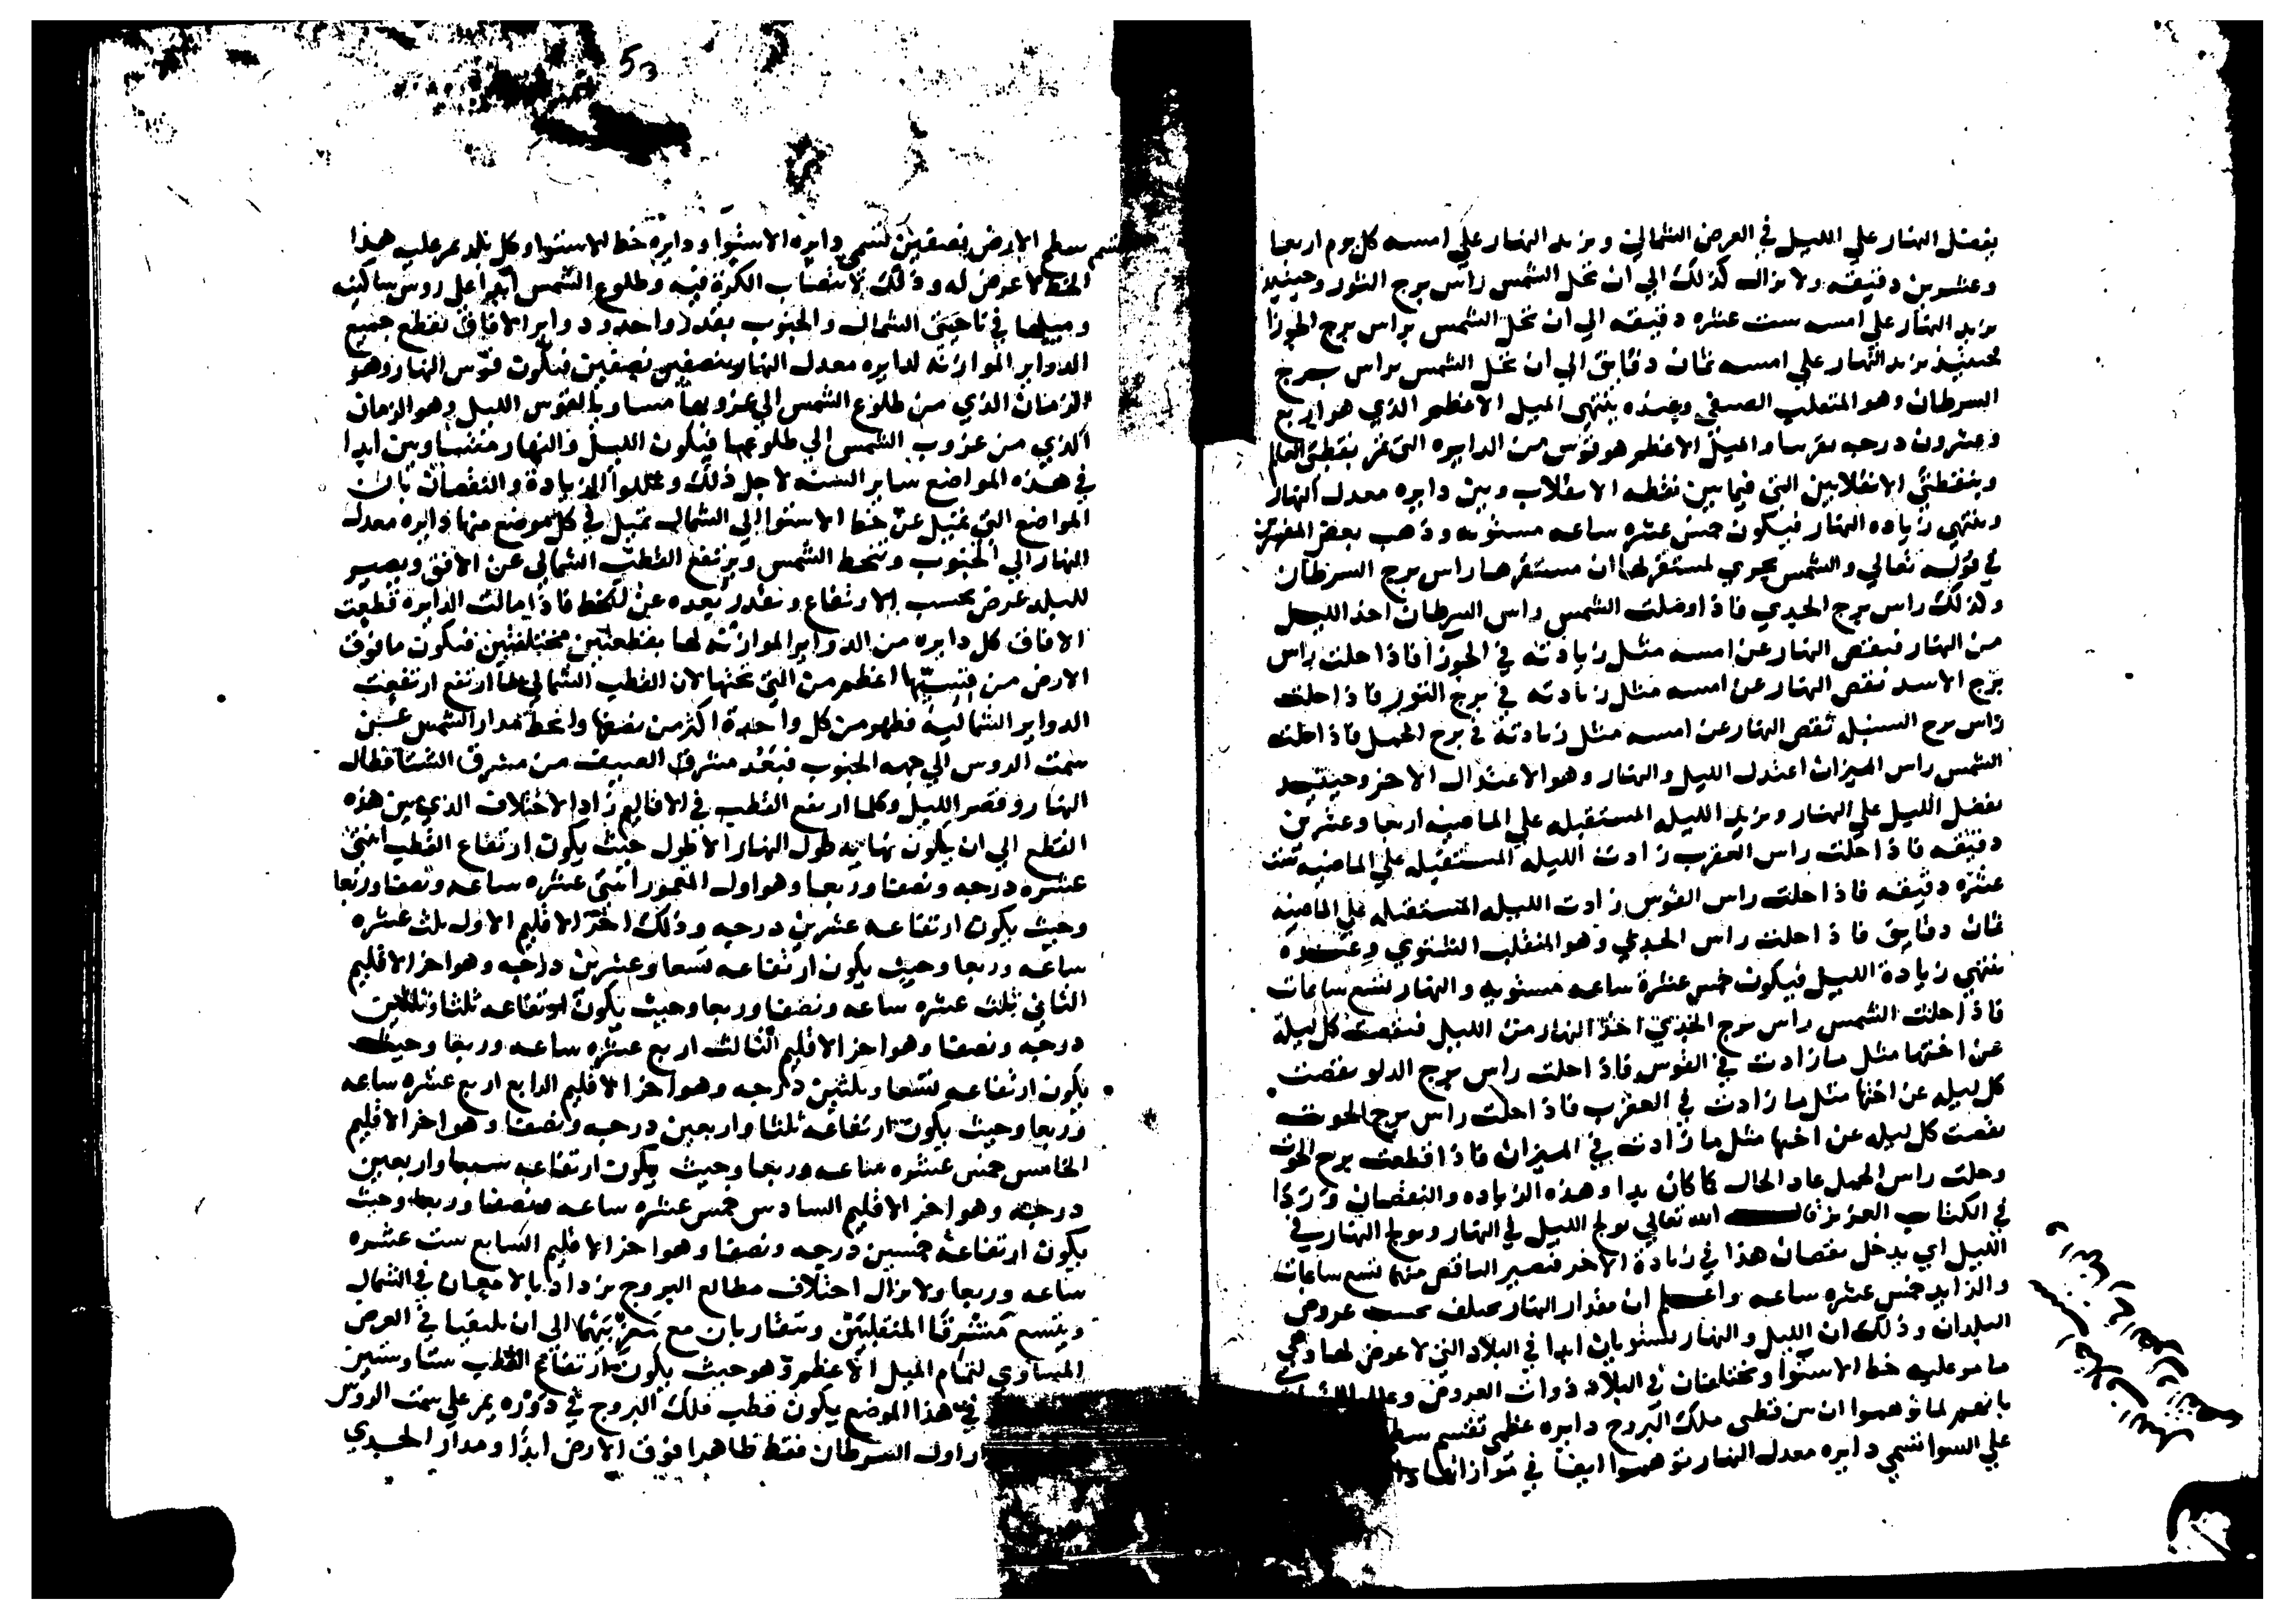 يفضل النهار علي الليل في العرض الشمالي ويزيد النهار علي امسه كل يوم اربعا
وعشرين دقيقه ولا يزال كذلك الي ان تحل الشمس راس برج الثور وحينيذ
يزيد النهار علي امسه ست عشره دقيقه الي ان تحل الشمس براس برج الجوزا
فحينيذ يزيد النهار علي امسه ثمان دقايق الي ان تحل الشمس براس برج
السرطان وهو المنقلب الصيفي وعنده ينتهي الميل الاعظم الذي هو اربع
وعشرون درجه تقريبا والميل الاعظم هو قوس من الدايره التي تمر بقطبي العالم
وبنقطتي الانقلابين التي فيما بين نقطه الانقلاب وبين دايره معدل النهار
وينتهي زياده النهار فيكون خمس عشره ساعه مستويه وذهب بعض المفسرين
في قوله تعالي والشمس تجري لمستقر لها ان مستقرها راس برج السرطان
وكذلك راس برج الجدي فاذا وصلت الشمس راس السرطان اخذ الليل
من النهار فينقص النهار عن امسه مثل زيادته في الجوزا فاذا حلت راس
برج الاسد نقص النهار عن امسه مثل زيادته في برج الثور فاذا حلت
راس برج السنبله نقص النهار عن امسه مثل زيادته في برج الحمل فاذا حلت
الشمس راس الميزان اعتدل الليل والنهار وهو الاعتدال الاخر وحينيذ
يفضل الليل علي النهار ويزيد الليله المستقبله علي الماضيه اربعا وعشرين
دقيقه فاذا حلت راس العقرب زادت الليله المستقبله علي الماضيه ست
عشره دقيقه فاذا حلت راس القوس زادت الليله المستقبله علي الماضيه
ثمان دقايق فاذا حلت راس الجدي وهو المنقلب الشتوي وعنده
ينتهي زيادة الليل فيكون خمس عشرة ساعه مستويه والنهار تسع ساعات
فاذا حلت الشمس راس برج الجدي اخذ النهار من الليل فنقصت كل ليلة
عن اختها مثل ما زادت في القوس فاذا حلت راس برج الدلو نقصت
كل ليله عن اختها مثل ما زادت في العقرب فاذا حلت راس برج الحوت
نقصت كل ليله عن اختها مثل ما زادت في الميزان فاذا قطعت برج الحوت
وحلت راس الحمل عاد الحال كما كان بدا وهذه الزياده والنقصان وردا
في الكتاب العزيز قال الله تعالي يولج الليل في النهار ويولج النهار في
الليل اي يدخل نقصان هذا في زيادة الاخر فتصير الناقص منها تسع ساعات
والزايد خمس عشره ساعه واعلم ان مقدار النهار يختلف بحسب عروض
البلدان وذلك ان الليل والنهار يستويان ابدا في البلاد التي لا عرض لها وهي
ما مر عليه خط الاستوا ويختلفان في البلاد ذوات العروض
بانهم لما توهموا ان بين قطبي فلك البروج دايره عظمي تقسم
علي السوا تسمي دايره معدل النهار توهموا ايضا في موازاتها
سطح الارض بنصفين تسمي دايره الاستوا ودايره خط الاستوا وكل بلد يمر عليه هذا
الخط لا عرض له وذلك لانتصاب الكرة فيه وطلوع الشمس ابدا علي روس ساكنيه
وميلها في ناحيتي الشمال والجنوب بقدر واحد ودواير الافاق تقطع جميع
الدواير الموازنه لدايره معدل النهار بنصفين نصفين فيكون قوس النهار وهو
الزمان الذي من طلوع الشمس الي غروبها مساويا لقوس الليل وهو الزمان
الذي من غروب الشمس الي طلوعها فيكون الليل والنهار متساويين ابدا
في هذه المواضع ساير السنه لاجل ذلك وعللوا الزيادة والنقصان بان
المواضع التي تميل عن خط الاستوا الي الشمال تميل في كل موضع منها دايره معدل
النهار الي الجنوب وتنحط الشمس ويرتفع القطب الشمالي عن الافق ويصير
للبلد عرض بحسب الارتفاع وبقدر بعده عن الخط فاذا مالت الدايره قطعت
الافاق كل دايره من الدواير الموازنه لها بقطعتين مختلفتين فيكون ما فوق
الارض من قسميها اعظم من التي تحتها لان القطب الشمالي لما ارتفع ارتفعت
الدواير الشمالية فظهر من كل واحدة اكثر من نصفها وانحط مدار الشمس عن
سمت الروس الي جهه الجنوب فبعد مشرق الصيف من مشرق الشتا فطال
النهار وقصر الليل وكلما ارتفع القطب في الاقاليم زاد الاختلاف الذي بين هذه
القطع الي ان يكون نهايه طول النهار الاطول حيث يكون ارتفاع القطب اثنتي
عشره درجه ونصفا وربعا وهو اول المعمور اثنتي عشره ساعه ونصفا وربعا
وحيث يكون ارتفاعه عشرين درجه وذلك اخر الاقليم الاول ثلث عشره
ساعه وربعا وحيث يكون ارتفاعه تسعا وعشرين درجه وهو اخر الاقليم
الثاني ثلث عشره ساعه ونصفا وربعا وحيث يكون ارتفاعه ثلثا وثلاثين
درجه ونصفا وهو اخر الاقليم الثالث اربع عشره ساعه وربعا وحيث
يكون ارتفاعه تسعا وثلثين درجه وهو اخر الاقليم الرابع اربع عشره ساعه
وربعا وحيث يكون ارتفاعه ثلثا واربعين درجه ونصفا وهو اخر الاقليم
الخامس خمس عشره ساعه وربعا وحيث يكون ارتفاعه سبعا واربعين
درجه وهو اخر الاقليم السادس خمس عشره ساعه ونصفا وربعا وحيث
يكون ارتفاعه خمسين درجه ونصفا وهو اخر الاقليم السابع ست عشره
ساعه وربعا ولا يزال اختلاف مطالع البروج يزداد بالامعان في الشمال
ويتسع مشرقا المنقلبين ويتقاربان مع مغربيهما الي ان يلتقيا في العرض
المساوي لتمام الميل الاعظم وهو حيث يكون ارتفاع القطب ستا وستين
في هذا الموضع يكون قطب فلك البروج في دوره يمر علي سمت الروس
اول السرطان فقط ظاهرا فوق الارض ابدا ومدار الجدي
53